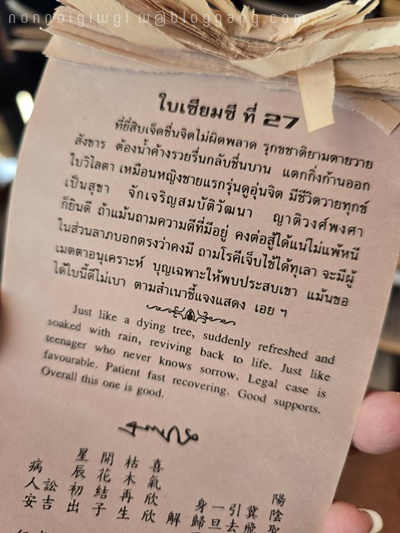 nonnoigiwgiw@bloggang.com
ใบเซียมซี ที่ 27
ที่ยี่สิบเจ็ดชื่นจิตไม่ผิดพลาด รุกขชาติยามตายวาย
สังขาร ต้องน้ำค้างรวยรื่นกลับชื่นบาน แตกกิ่งก้านออก
ใบวิไลตา เหมือนหญิงชายแรกรุ่นดูอุ่นจิต มีชีวิตวายทุกข์
เป็นสุขา จักเจริญสมบัติวัฒนา ญาติวงศ์พงศา
ก็ยินดี ถ้าแม้นถามความดีที่มีอยู่ คงต่อสู้ได้แน่ไม่แพ้หนี
ในส่วนลาภบอกตรงว่าคงมี ถามโรคีเจ็บไข้ได้ทุเลา จะมีผู้
เมตตาอนุเคราะห์ บุญเฉพาะให้พบประสบเขา แม้นขอ
ได้ใบนี้ดีไม่เบา ตามสำเนาชี้แจงแสดง เอย ฯ
Just like a dying tree, suddenly refreshed and
soaked with rain, reviving back to life. Just like
teenager who never knows sorrow. Legal case is
favourable. Patient fast recovering. Good supports.
Overall this one is good.
喜氣欣欣
枯木再生
開花結子
星辰初出
病人訟吉安